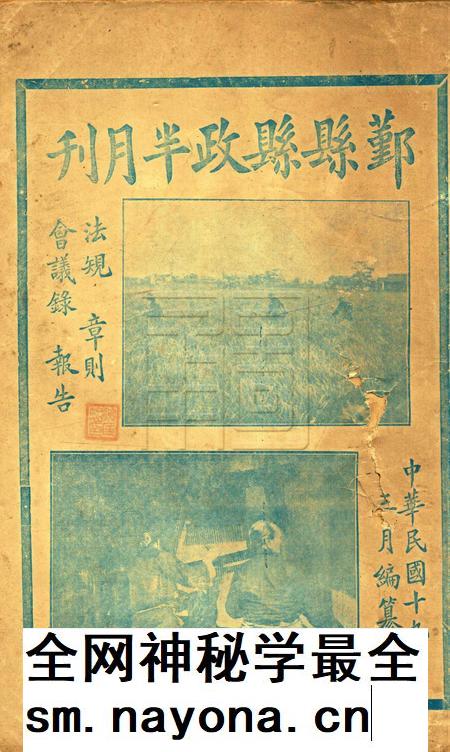 鄞縣縣政半月刊
法規 章則
會議錄 報告
中華民國十九
月編纂
全网神秘学最全
sm.nayona.cn